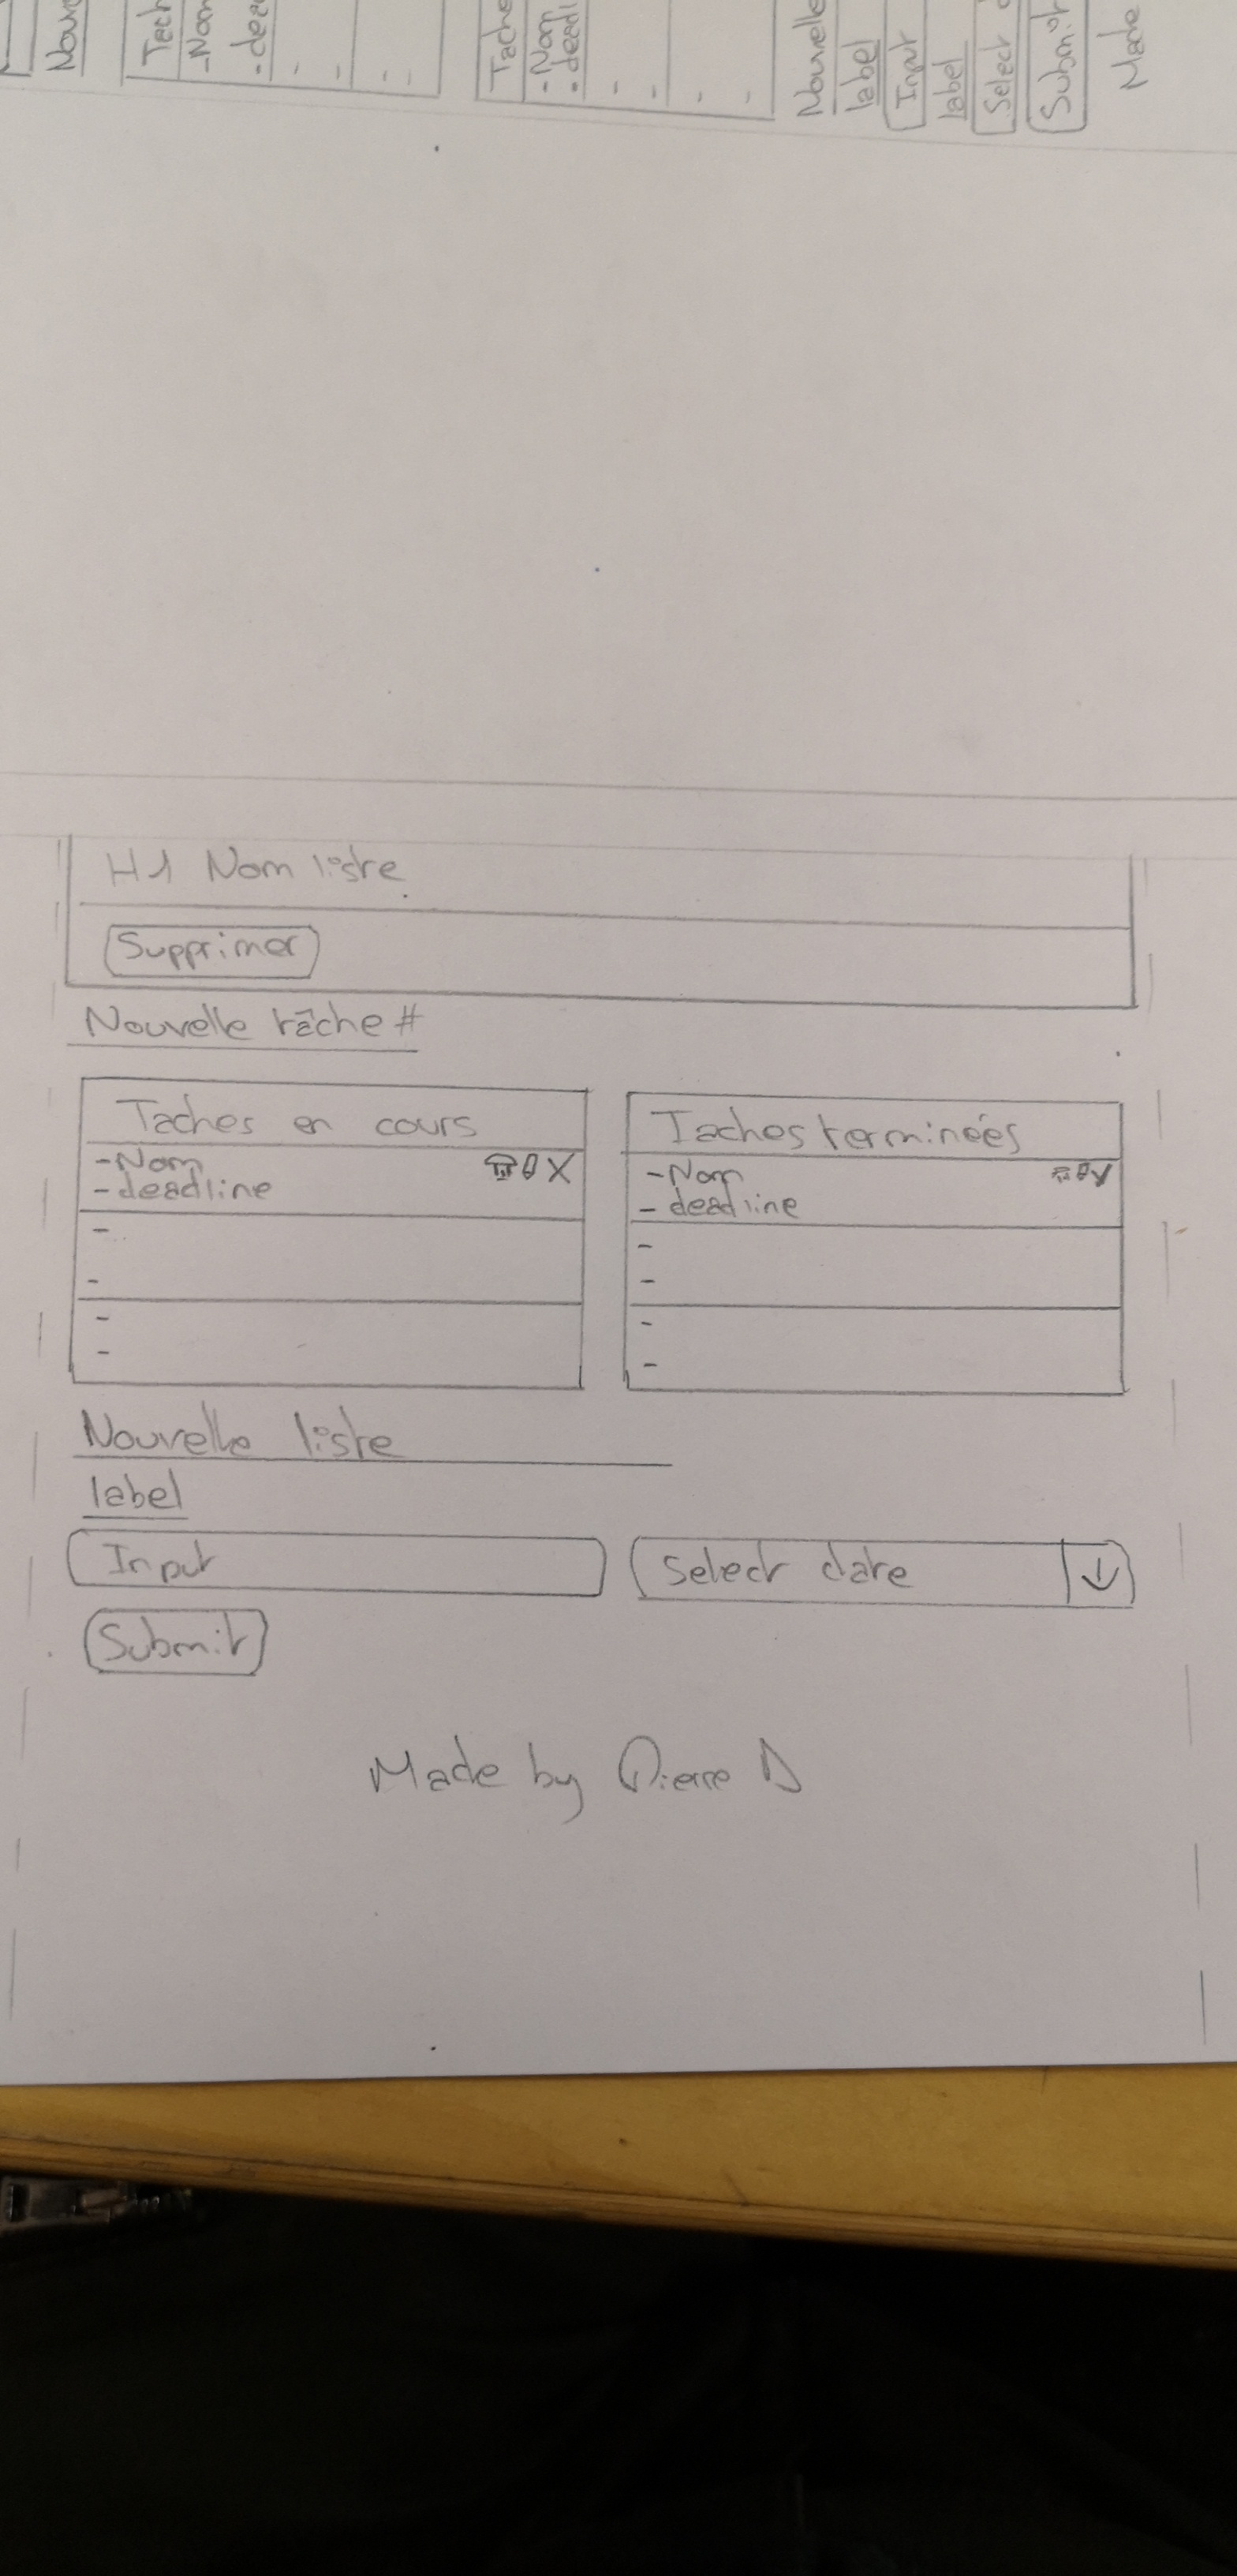 Nouv
Tach
-Nom
- dea
Tache
- Nom
- deadl
Nouvelle
label
Input
label
Select
Submit
Made
H1 Nom liste
Supprimer
Nouvelle tâche #
Taches en cours
-Nom X
-deadline
Taches terminées
-Nom
- deadline
Nouvelle liste
label
Input
Select date
Submit
Made by Pierre D